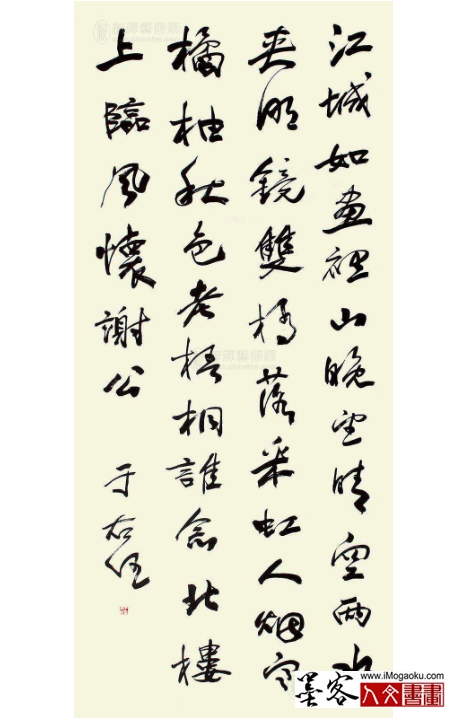 江城如畫裡山晚望晴空兩水
夾明鏡雙橋落采虹人烟寒
橘柚秋色老梧桐誰念北樓
上臨風懷謝公
于右任
www.iMogaoku.com
墨客人文書畫